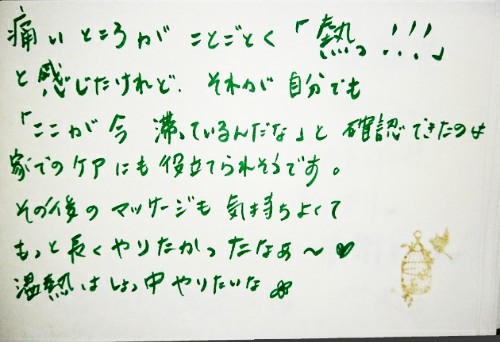 痛いところがことごとく「熱っ!!!」
と感じたけれど、それが自分でも
「ここが今 滞っているんだな」と確認できたのは
家でのケアにも役立てられそうです。
その後のマッサージも気持ちよくて
もっと長くやりたかったなぁ〜♥
温熱はしょっ中やりたいな